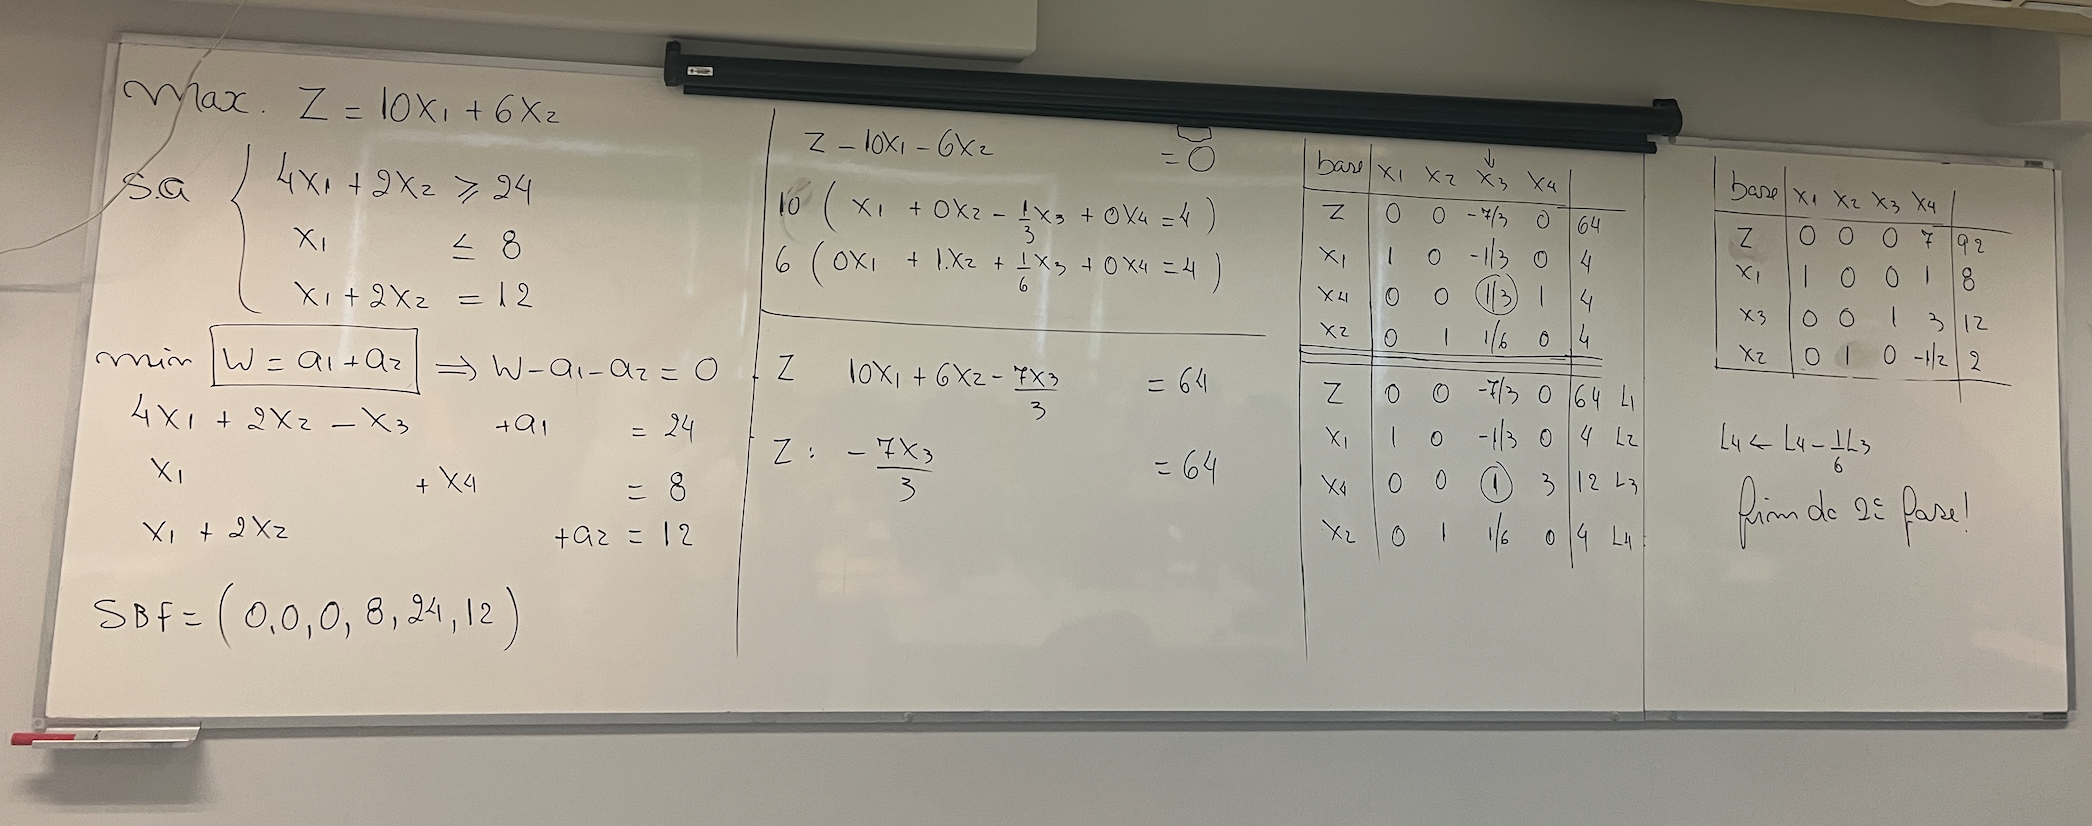 Max. Z = 10X1 + 6X2
S.a { 4X1 + 2X2 ≥ 24
X1 ≤ 8
X1 + 2X2 = 12
min W = a1 + a2 ⇒ W - a1 - a2 = 0
4X1 + 2X2 - X3 + a1 = 24
X1 + X4 = 8
X1 + 2X2 + a2 = 12
SBF = (0, 0, 0, 8, 24, 12)
Z - 10X1 - 6X2 = 0
10 ( X1 + 0X2 - 1/3 X3 + 0X4 = 4 )
6 ( 0X1 + 1.X2 + 1/6 X3 + 0X4 = 4 )
Z 10X1 + 6X2 - 7X3/3 = 64
Z : - 7X3/3 = 64
↓
base X1 X2 X3 X4
Z 0 0 -7/3 0 64
X1 1 0 -1/3 0 4
X4 0 0 1/3 1 4
X2 0 1 1/6 0 4
Z 0 0 -7/3 0 64 L1
X1 1 0 -1/3 0 4 L2
X4 0 0 1 3 12 L3
X2 0 1 1/6 0 4 L4
base X1 X2 X3 X4
Z 0 0 0 7 92
X1 1 0 0 1 8
X3 0 0 1 3 12
X2 0 1 0 -1/2 2
L4 ← L4 - 1/6 L3
fim da 2ª fase!